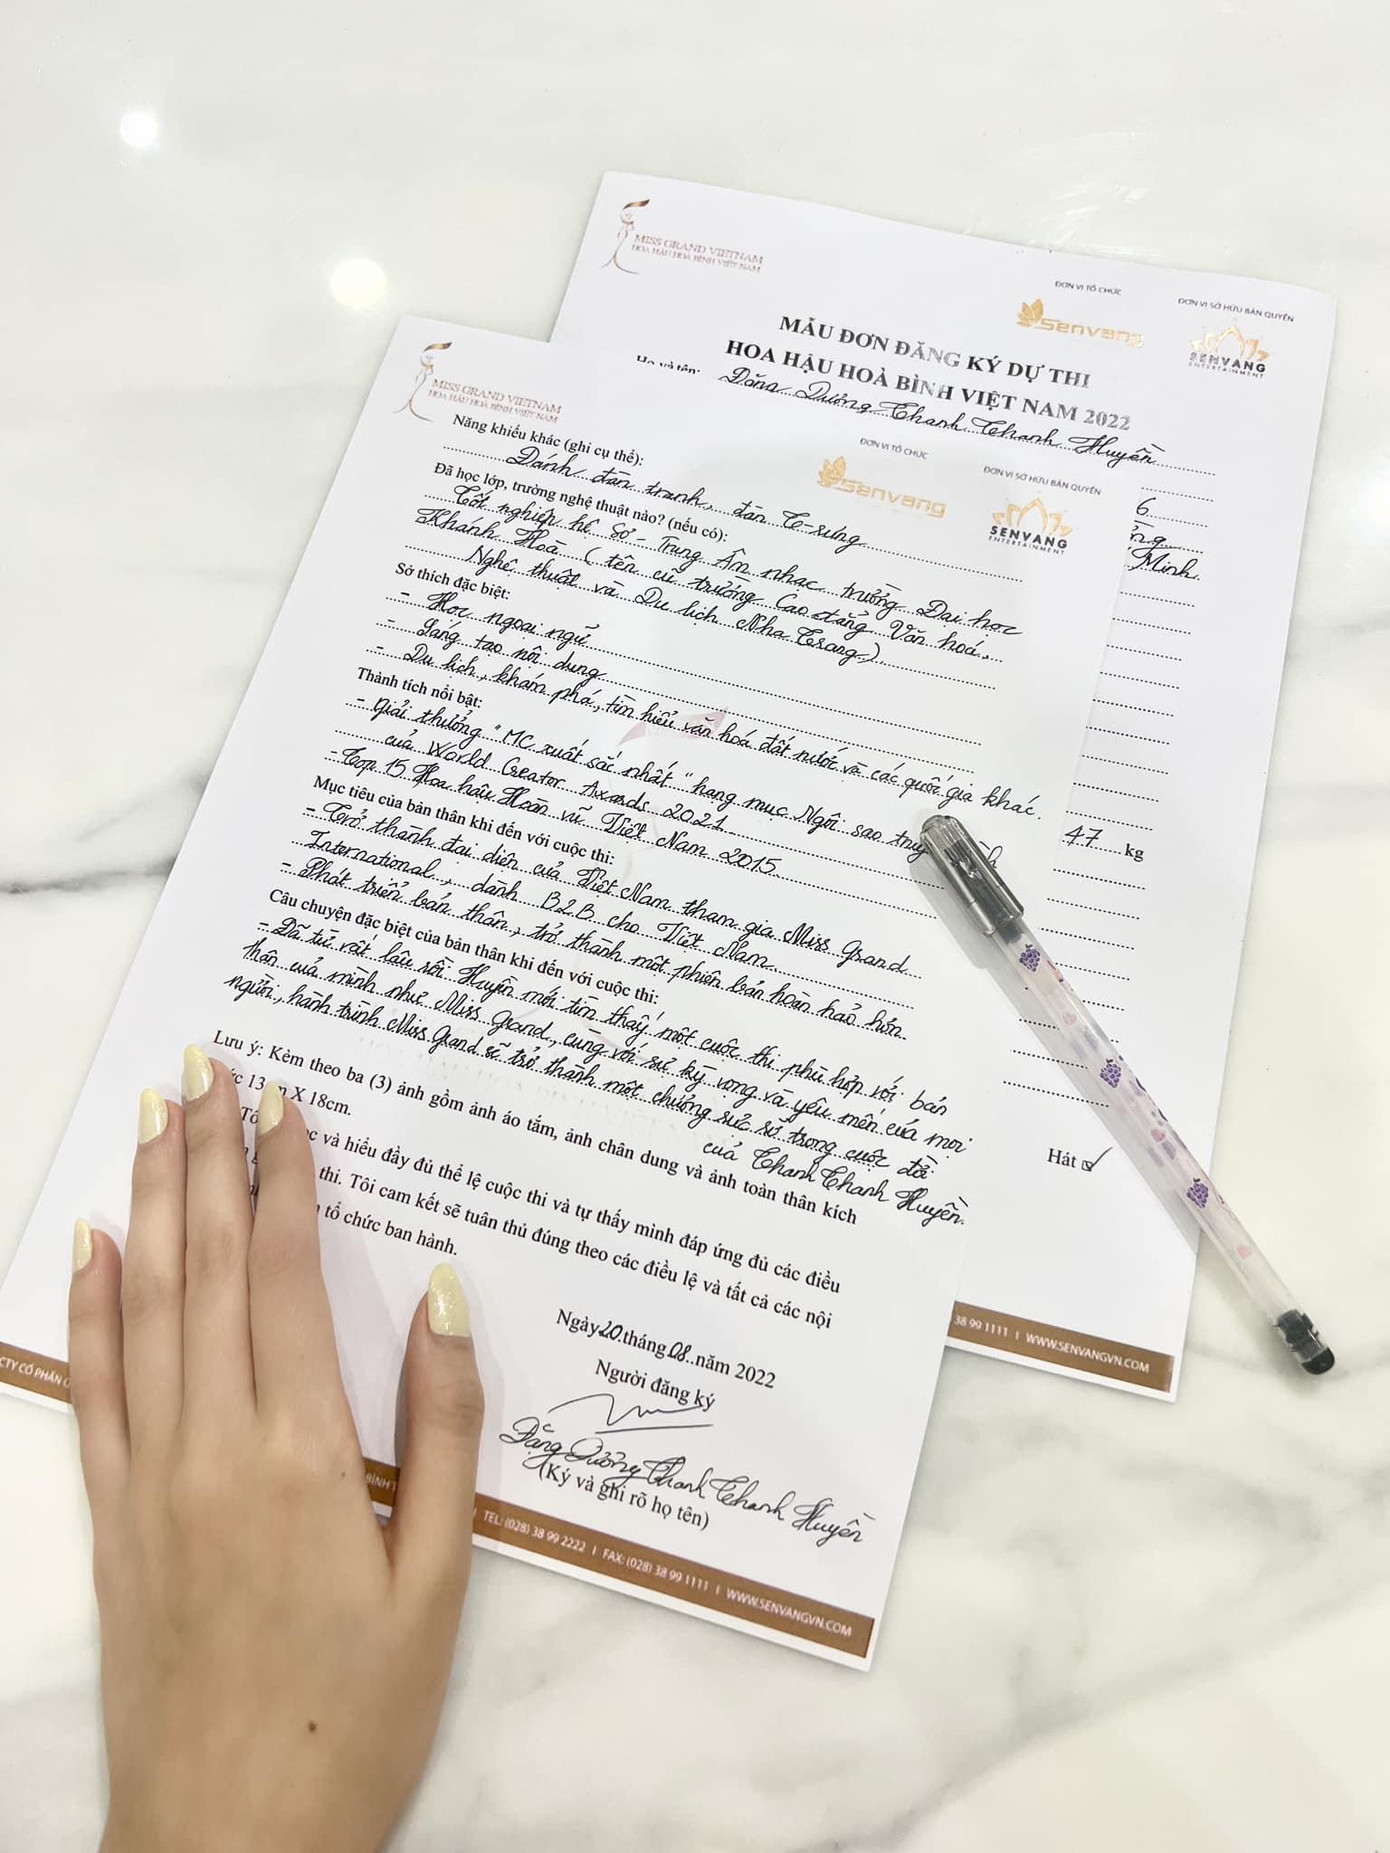 MISS GRAND VIETNAM
HOA HẬU HOÀ BÌNH VIỆT NAM
ĐƠN VỊ TỔ CHỨC
Senvang
ĐƠN VỊ SỞ HỮU BẢN QUYỀN
SENVANG
ENTERTAINMENT
MẪU ĐƠN ĐĂNG KÝ DỰ THI
HOA HẬU HOÀ BÌNH VIỆT NAM 2022
Họ và tên: Đặng Dương Thanh Thanh Huyền
6
Minh
47 kg
Hát
38 99 1111 I WWW.SENVANGVN.COM
MISS GRAND VIETNAM
HOA HẬU HOÀ BÌNH VIỆT NAM
ĐƠN VỊ TỔ CHỨC
Senvang
ĐƠN VỊ SỞ HỮU BẢN QUYỀN
SENVANG
ENTERTAINMENT
Năng khiếu khác (ghi cụ thể):
Đánh đàn tranh, đàn T-rưng
Đã học lớp, trường nghệ thuật nào? (nếu có):
Tốt nghiệp hệ Sơ - Trung Âm nhạc trường Đại học
Khánh Hoà (tên cũ trường Cao đẳng Văn hoá,
Nghệ thuật và Du lịch Nha Trang)
Sở thích đặc biệt:
- Học ngoại ngữ
- Sáng tạo nội dung
- Du lịch, khám phá, tìm hiểu văn hoá đất nước và các quốc gia khác.
Thành tích nổi bật:
- Giải thưởng "MC xuất sắc nhất" hạng mục Ngôi sao
của World Creator Awards 2021
- Top 15 Hoa hậu Hoàn vũ Việt Nam 2015
Mục tiêu của bản thân khi đến với cuộc thi:
- Trở thành đại diện của Việt Nam tham gia Miss Grand
International, dành B2B cho Việt Nam
- Phát triển bản thân, trở thành một phiên bản hoàn hảo hơn
Câu chuyện đặc biệt của bản thân khi đến với cuộc thi:
- Đã từ rất lâu rồi Huyền mới tìm thấy một cuộc thi phù hợp với bản
thân của mình như Miss Grand, cùng với sự kỳ vọng và yêu mến của mọi
người, hành trình Miss Grand sẽ trở thành một chương rực rỡ trong cuộc đời
của Thanh Thanh Huyền.
Lưu ý: Kèm theo ba (3) ảnh gồm ảnh áo tắm, ảnh chân dung và ảnh toàn thân kích
X 18cm.
và hiểu đầy đủ thể lệ cuộc thi và tự thấy mình đáp ứng đủ các điều
thi. Tôi cam kết sẽ tuân thủ đúng theo các điều lệ và tất cả các nội
tổ chức ban hành.
Ngày 20 tháng 08 năm 2022
Người đăng ký
Đặng Dương Thanh Thanh Huyền
(Ký và ghi rõ họ tên)
CTY CỔ PHẦN
TEL: (028) 38 99 2222 I FAX: (028) 38 99 1111 I WWW.SENVANGVN.COM